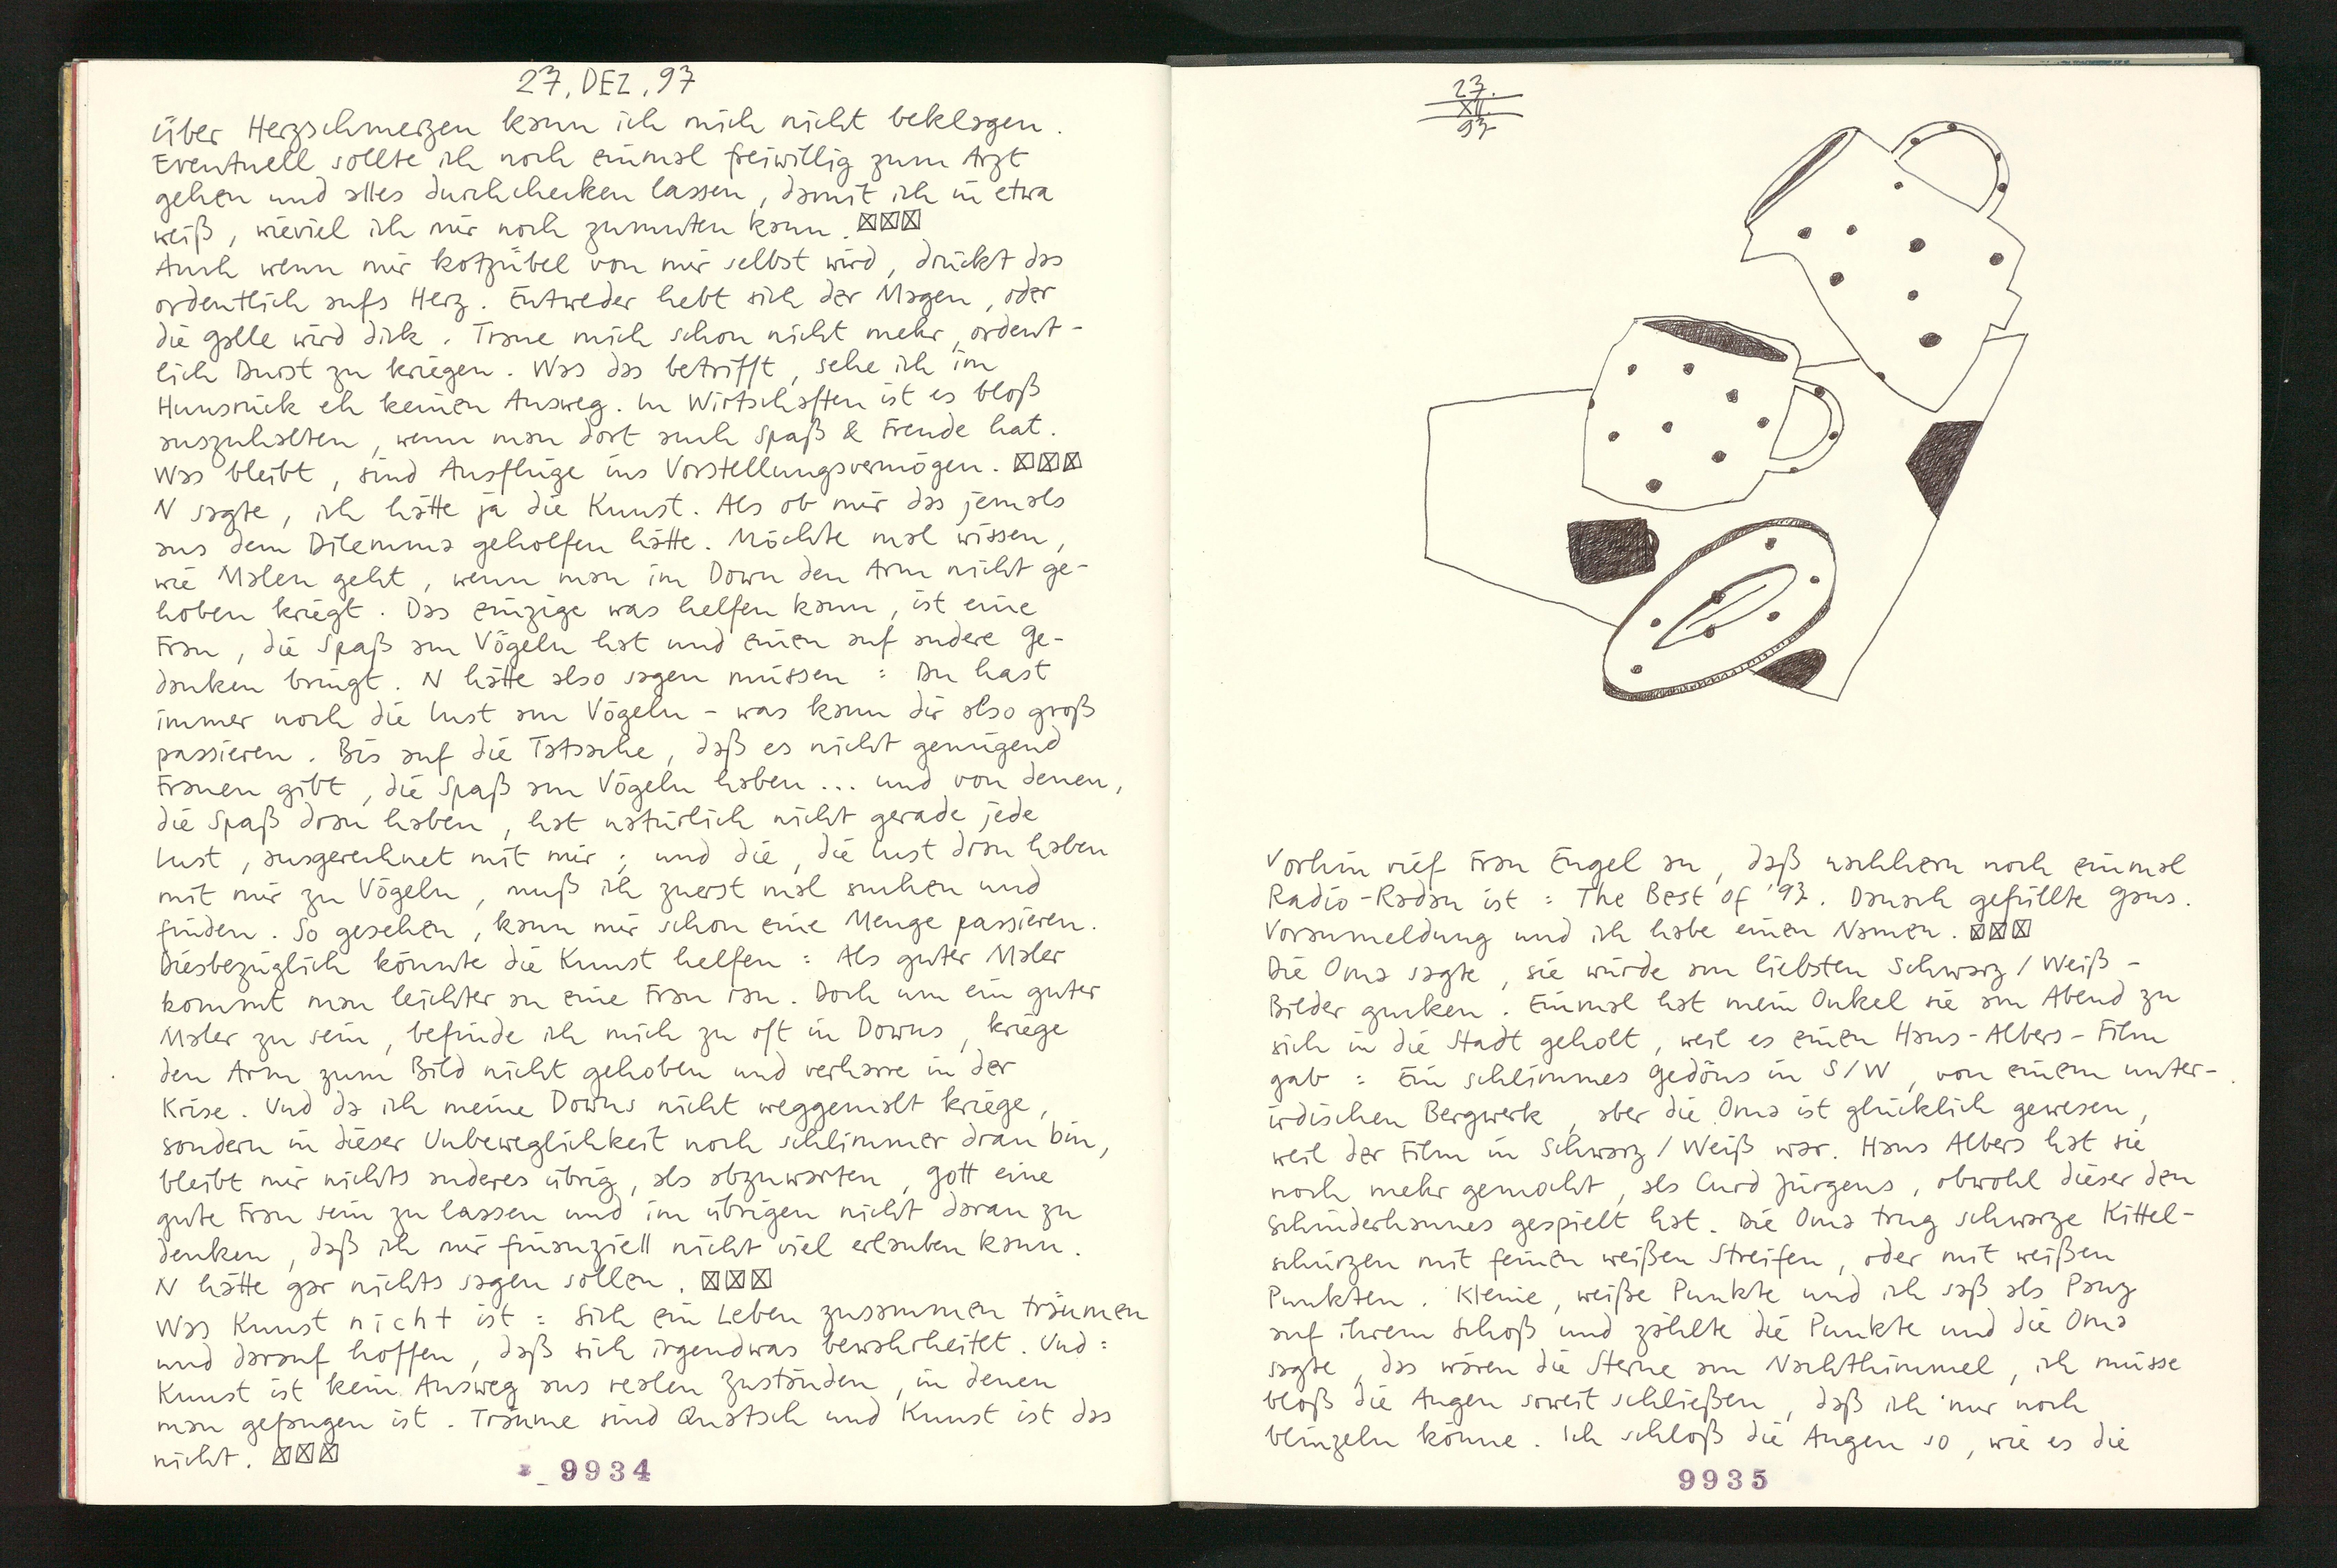 27. DEZ. 97
über Herzschmerzen kann ich mich nicht beklagen.
Eventuell sollte ich noch einmal freiwillig zum Arzt
gehen und alles durchchecken lassen, damit ich in etwa
weiß, wieviel ich mir noch zumuten kann. ☒☒☒
Auch wenn mir kotzübel von mir selbst wird, drückt das
ordentlich aufs Herz. Entweder hebt sich der Magen, oder
die Galle wird dick. Traue mich schon nicht mehr, ordent-
lich Durst zu kriegen. Was das betrifft, sehe ich im
Hunsrück eh keinen Ausweg. In Wirtschaften ist es bloß
auszuhalten, wenn man dort auch Spaß & Freude hat.
Was bleibt, sind Ausflüge ins Vorstellungsvermögen. ☒☒☒
N sagte, ich hätte ja die Kunst. Als ob mir das jemals
aus dem Dilemma geholfen hätte. Möchte mal wissen,
wie Malen geht, wenn man im Down den Arm nicht ge-
hoben kriegt. Das einzige was helfen kann, ist eine
Frau, die Spaß am Vögeln hat und einen auf andere Ge-
danken bringt. N hätte also sagen müssen: Du hast
immer noch die Lust am Vögeln - was kann dir also groß
passieren. Bis auf die Tatsache, daß es nicht genügend
Frauen gibt, die Spaß am Vögeln haben... und von denen,
die Spaß dran haben, hat natürlich nicht gerade jede
Lust, ausgerechnet mit mir; und die, die Lust dran haben
mit mir zu Vögeln, muß ich zuerst mal suchen und
finden. So gesehen, kann mir schon eine Menge passieren.
Diesbezüglich könnte die Kunst helfen: Als guter Maler
kommt man leichter an eine Frau ran. Doch um ein guter
Maler zu sein, befinde ich mich zu oft in Downs, kriege
den Arm zum Bild nicht gehoben und verharre in der
Krise. Und da ich meine Downs nicht weggemalt kriege,
sondern in dieser Unbeweglichkeit noch schlimmer dran bin,
bleibt mir nichts anderes übrig, als abzuwarten, Gott eine
gute Frau sein zu lassen und im übrigen nicht daran zu
denken, daß ich mir finanziell nicht viel erlauben kann.
N hätte gar nichts sagen sollen. ☒☒☒
Was Kunst nicht ist: Sich ein Leben zusammen träumen
und darauf hoffen, daß sich irgendwas bewahrheitet. Und:
Kunst ist kein Ausweg aus realen Zuständen, in denen
man gefangen ist. Träume sind Quatsch und Kunst ist das
nicht. ☒☒☒
9934
27.
XII.
97
Vorhin rief Frau Engel an, daß nachhern noch einmal
Radio-Radau ist: The Best of '97. Danach gefüllte Gans.
Voranmeldung und ich habe einen Namen. ☒☒☒
Die Oma sagte, sie würde am liebsten Schwarz/Weiß-
Bilder gucken. Einmal hat mein Onkel sie am Abend zu
sich in die Stadt geholt, weil es einen Hans-Albers-Film
gab: Ein schlimmes Gedöns in S/W, von einem unter-
irdischen Bergwerk, aber die Oma ist glücklich gewesen,
weil der Film in Schwarz/Weiß war. Hans Albers hat sie
noch mehr gemocht, als Curd Jürgens, obwohl dieser den
Schinderhannes gespielt hat. Die Oma trug schwarze Kittel-
schürzen mit feinen weißen Streifen, oder mit weißen
Punkten. Kleine, weiße Punkte und ich saß als Panz
auf ihrem Schoß und zählte die Punkte und die Oma
sagte, das wären die Sterne am Nachthimmel, ich müsse
bloß die Augen soweit schließen, daß ich nur noch
blinzeln könne. Ich schloß die Augen so, wie es die
9935